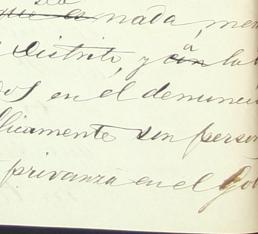 sea
nada, me
Distrito, y a la
dos en el denunci
licamente sin person
privanza en el Gob